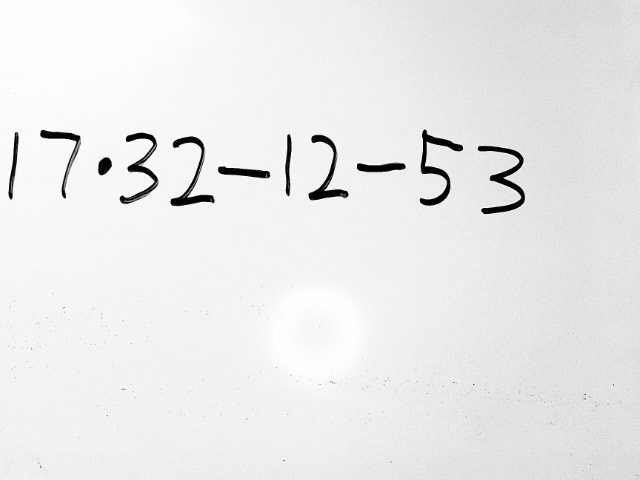 17·32-12-53